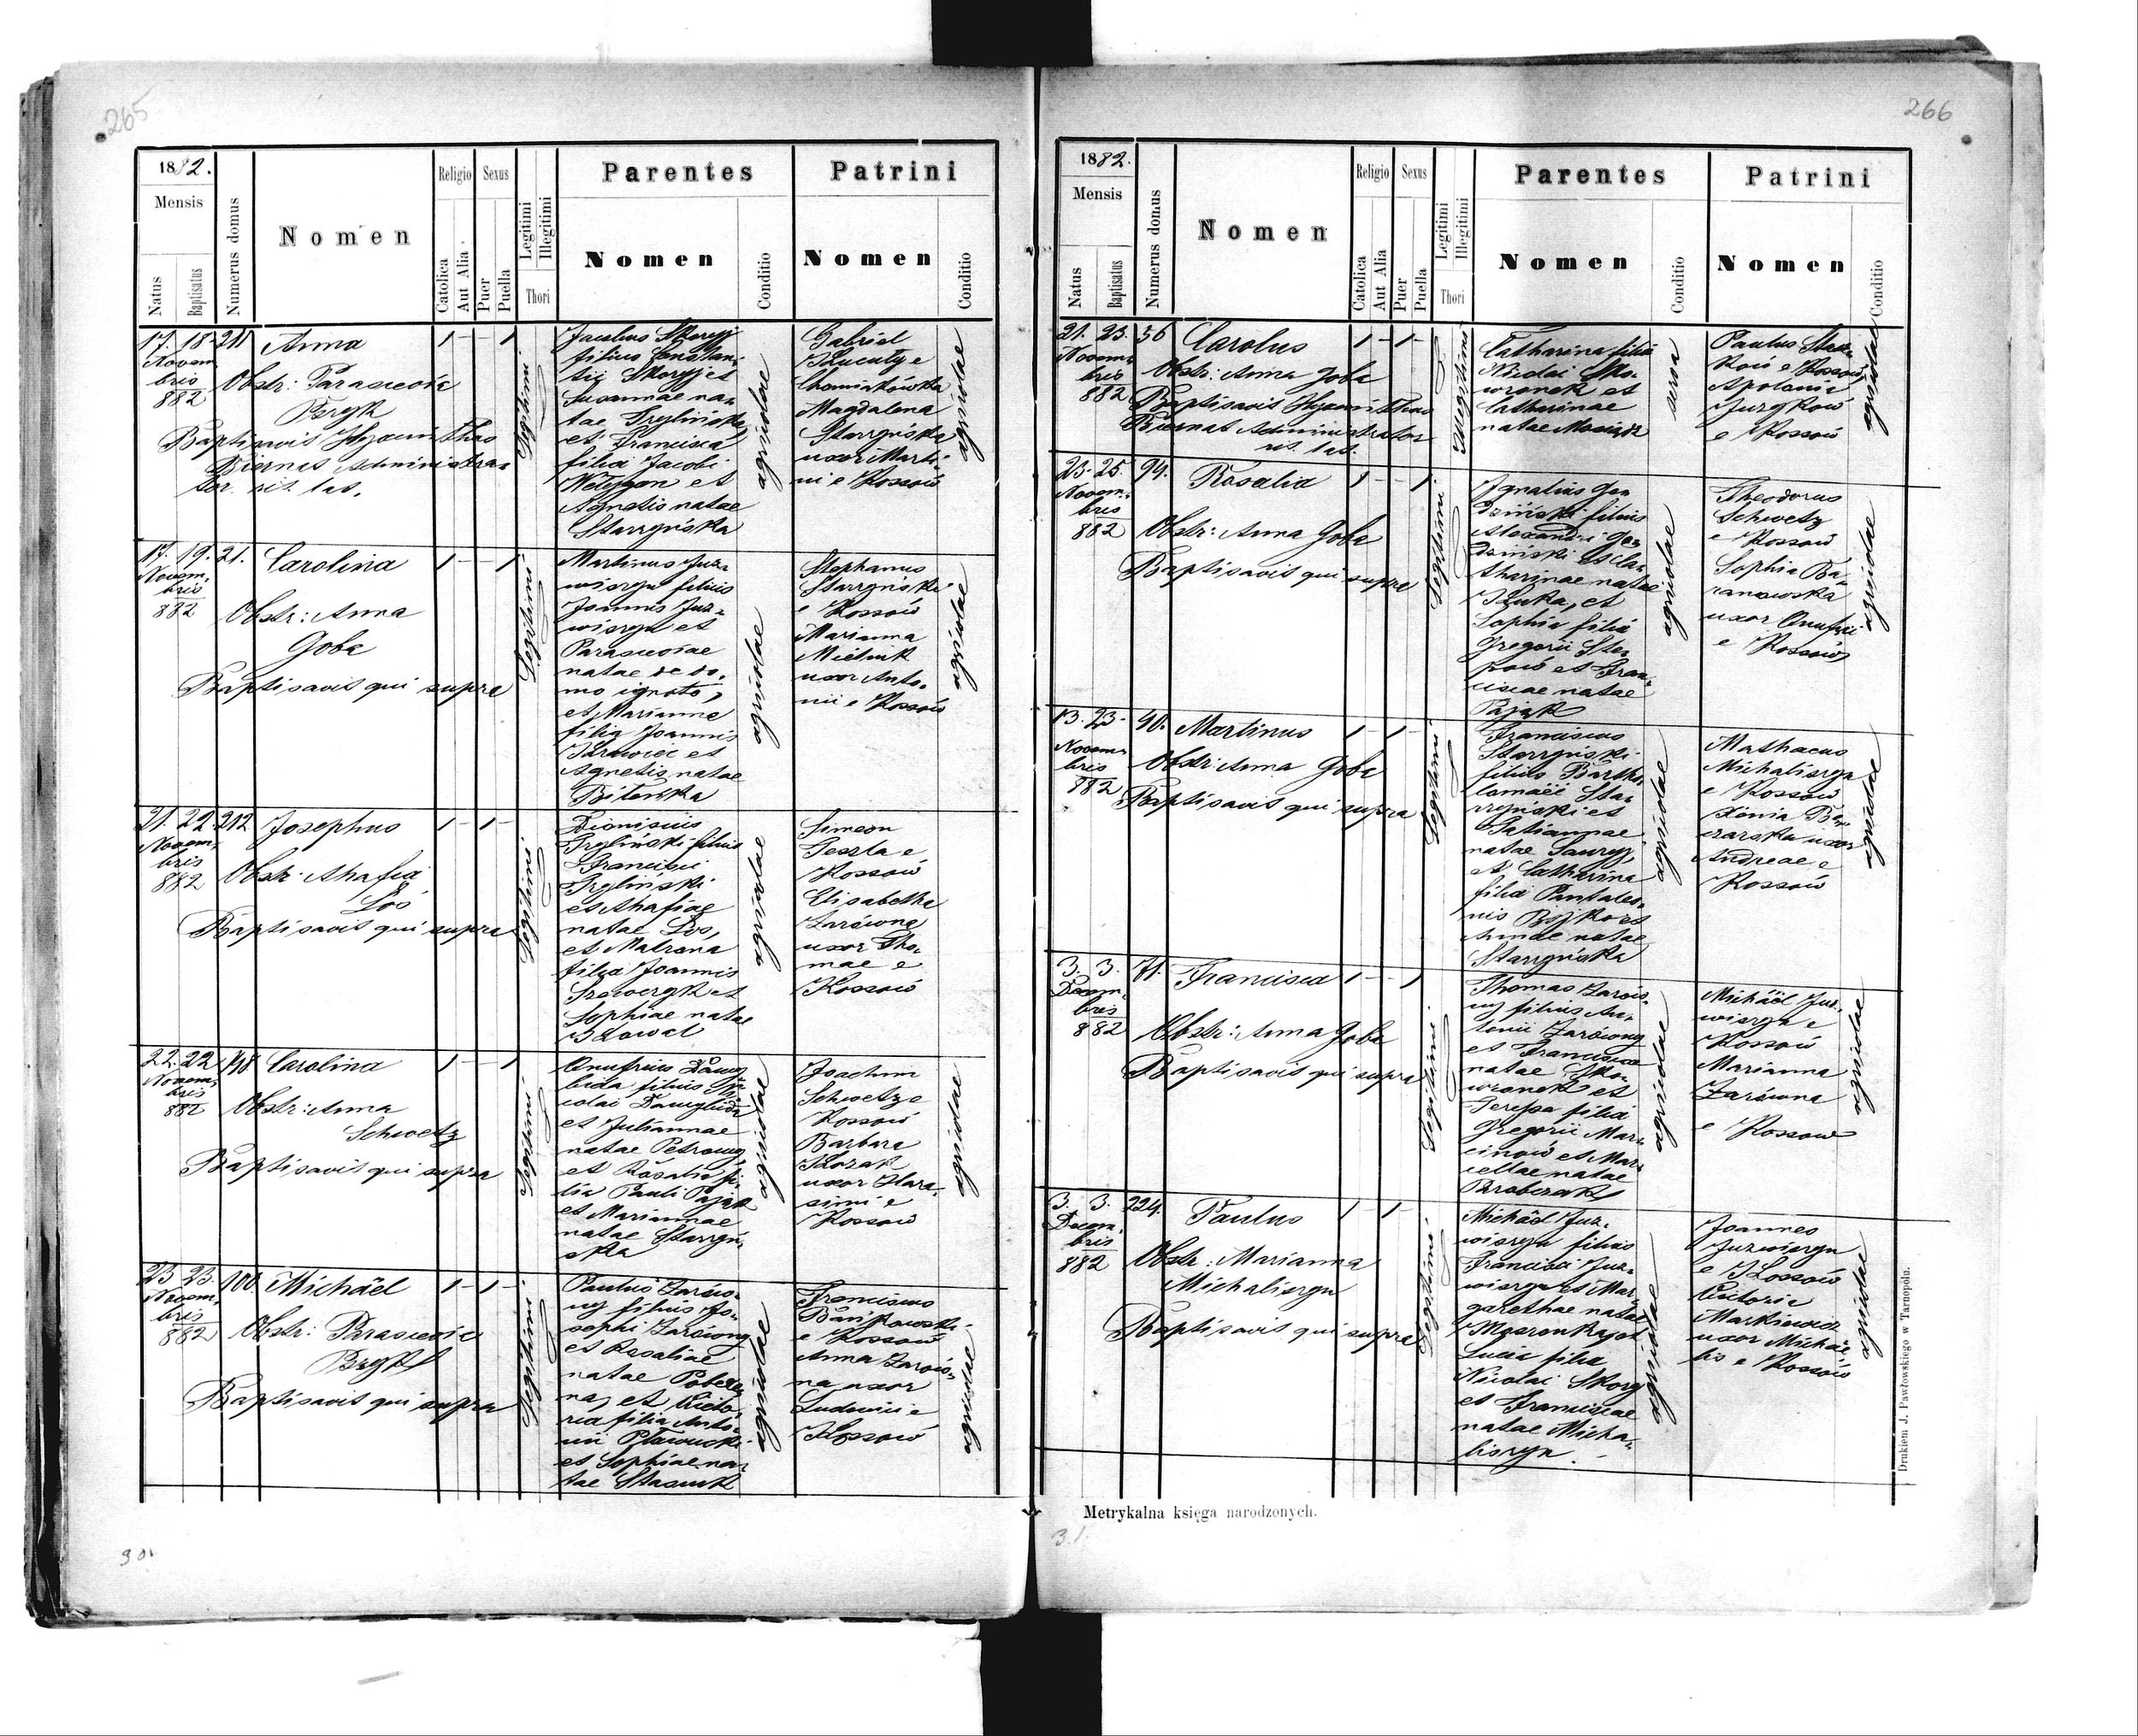 265
1882.
Mensis
Natus
Baptisatus
Numerus domus
Nomen
Religio
Catolica
Aut Alia
Sexus
Puer
Puella
Legitimi
Illegitimi
Thori
Parentes
Nomen
Conditio
Patrini
Nomen
Conditio
17. 18.
Novem
bris
882
Anna
Obstr: Parascevia
Baptisavit Hyacinthus
Biernat Administra=
tor rit. lat.
1 — 1
Legitimi
filius Constan=
tii Skoryj et
Susannae na=
tae
et Francisca
filia Jacobi
et
Agnetis natae
Starzyńska
agricolae
Gabriel
Magdalena
Starzyńska
uxor Marti=
ni e Kossów
agricolae
17. 19.
Novem.
bris
882
21.
Carolina
Obstr: Anna
Goba
Baptisavit qui supra
1 — 1
Legitimi
Martinus Juz=
wiszyn filius
Joannis Juz=
wiszyn et
Parasceviae
natae de do=
mo ignoto,
et Marianna
filia Joannis
et
Agnetis natae
agricolae
Stephanus
Starzyński
e Kossów
Marianna
Mielnik
uxor Anto=
nii e Kossów
agricolae
21. 22.
Novem.
bris
882
212
Josephus
Obstr: Ahafia
Łoś
Baptisavit qui supra
1 — 1 —
Legitimi
Dionisius
filius
Francisci
et Ahafiae
natae Łoś,
et Matrona
filia Joannis
et
Sophiae natae
agricolae
Simeon
e
Kossów
Elisabetha
Zarówna
uxor Tho=
mae e
Kossów
22. 22
Novem.
bris
882
Carolina
Obstr: Anna
Schwetz
Baptisavit qui supra
1 — 1
Legitimi
Onufrius
filius Ni=
colai
et Juliannae
natae
et Rosalia fi=
lia Pauli Pająk
et Mariannae
natae Starzyń=
ska
agricolae
Joachim
Schwetz e
Kossów
Barbara
Kozak
uxor Hara=
simi e
Kossów
agricolae
23 23.
Novem.
bris
882
100.
Michäel
Obstr: Parascevia
Baptisavit qui supra
1 — 1 —
Legitimi
Paulus
filius Jo=
sephi
et Rosaliae
natae
et Victo=
ria filia Anto=
nii
et Sophiae na=
tae Stasiuk
agricolae
Franciscus
Bańkowski
e Kossów
Anna
uxor
Ludovici e
Kossów
agricolae
30.
266
1882.
Mensis
Natus
Baptisatus
Numerus domus
Nomen
Religio
Catolica
Aut Alia
Sexus
Puer
Puella
Legitimi
Illegitimi
Thori
Parentes
Nomen
Conditio
Patrini
Nomen
Conditio
21. 23.
Novem=
bris
882
56
Carolus
Obstr: Anna Goba
Baptisavit Hyacinthus
Biernat Administrator
rit. lat.
1 — 1 —
Illegitimi
Catharina filia
Nicolai Sko=
wronek et
Catharinae
natae
serva
Paulus
e Kossów,
Apolonia
e Kossów
agricolae
23. 25.
Novem.
bris
882
94.
Rosalia
Obstr: Anna Goba
Baptisavit qui supra
1 — 1
Legitimi
Ignatius
filius
Alexandri
et Ca=
tharinae natae
et
Sophia filia
Gregorii
et Fran=
ciscae natae
Pająk
agricolae
Theodorus
Schwetz
e Kossów
Sophia Ba=
ranowska
uxor Onufrii
e Kossów
agricolae
13. 23.
Novem.
bris
882
40.
Martinus
Obstr: Anna Goba
Baptisavit qui supra
1 — 1 —
Legitimi
Franciscus
Starzyński
filius Bartho=
lomaei Sta=
rzyński et
Tatiannae
natae
et Catharina
filia Pantaleo=
nis et
Annae natae
Starzyńska
agricolae
Mathaeus
Michaliszyn
e Kossów
Xenia
uxor
Andreae e
Kossów
agricolae
3. 3.
Decem.
bris
882
71.
Francisca
Obstr: Anna Goba
Baptisavit qui supra
1 — 1
Legitimi
Thomas
filius An=
tonii
et Francisca
natae Sko=
wronek et
Teressa filia
Gregorii Mar=
cinów et Mar=
cellae natae
agricolae
Michäel Juz=
wiszyn e
Kossów
Marianna
Zarówna
e Kossów
agricolae
3. 3.
Decem.
bris
882
224.
Paulus
Obstr: Marianna
Michaliszyn
Baptisavit qui supra
1 — 1 —
Legitimi
Michäel Juz=
wiszyn filius
Francisci Juz=
wiszyn et Mar=
garethae natae
Lucia filia
Nicolai Skory
et Franciscae
natae Micha=
liszyn.
agricolae
Joannes
Juzwiszyn
e Kossów
Victoria
Markiewicz
uxor Michäe=
lis e Kossów
agricolae
Metrykalna księga narodzonych.
Drukiem J. Pawłowskiego w Tarnopolu.
31.